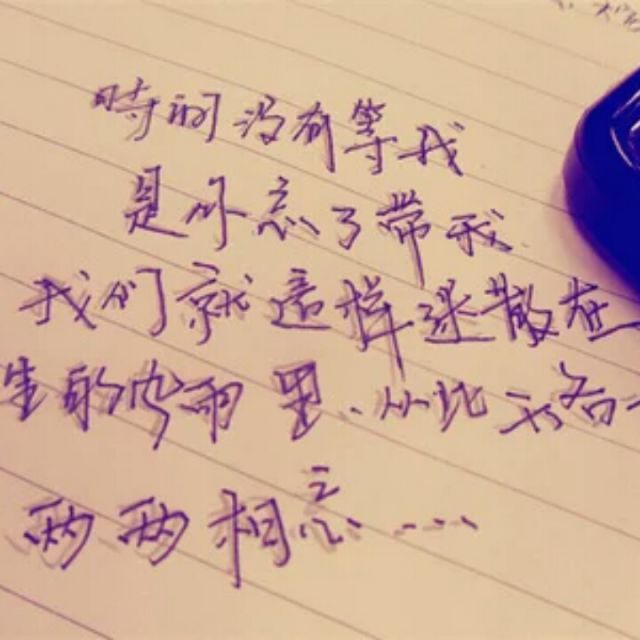 時间没有等我
是你忘了带我
我们就這样迷散在
生的风雨里、从此天各
两两相忘……